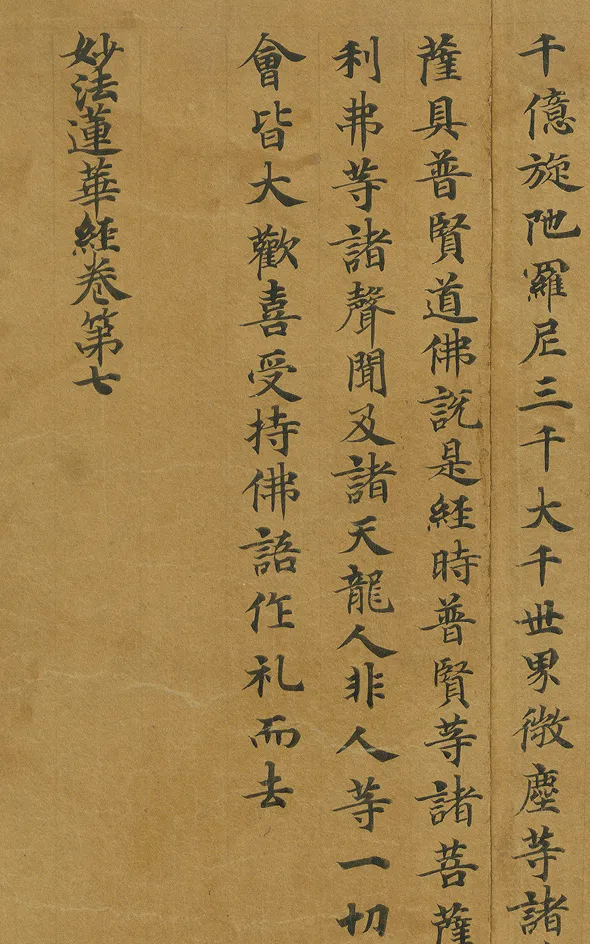 千億旋陁羅尼三千大千世界微塵等諸
薩具普賢道佛說是經時普賢等諸菩薩
利弗等諸聲聞及諸天龍人非人等一切
會皆大歡喜受持佛語作礼而去
妙法蓮華經卷第七